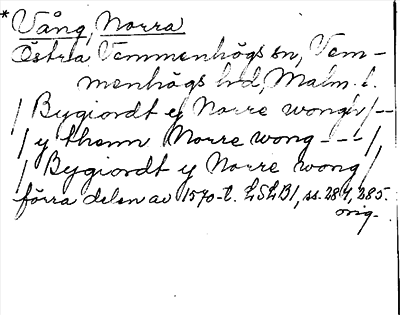 * Vång, Norra
Östra Vemmenhögs sn, Vem-
menhögs hd, Malm. l.
/ Bygiordt y Norre wongh /--
/ y thenn Norre wong --- /
/ Bygiordt y Norre wong /
förra delen av 1570-t. LSLB1, ss. 284, 285.
orig.